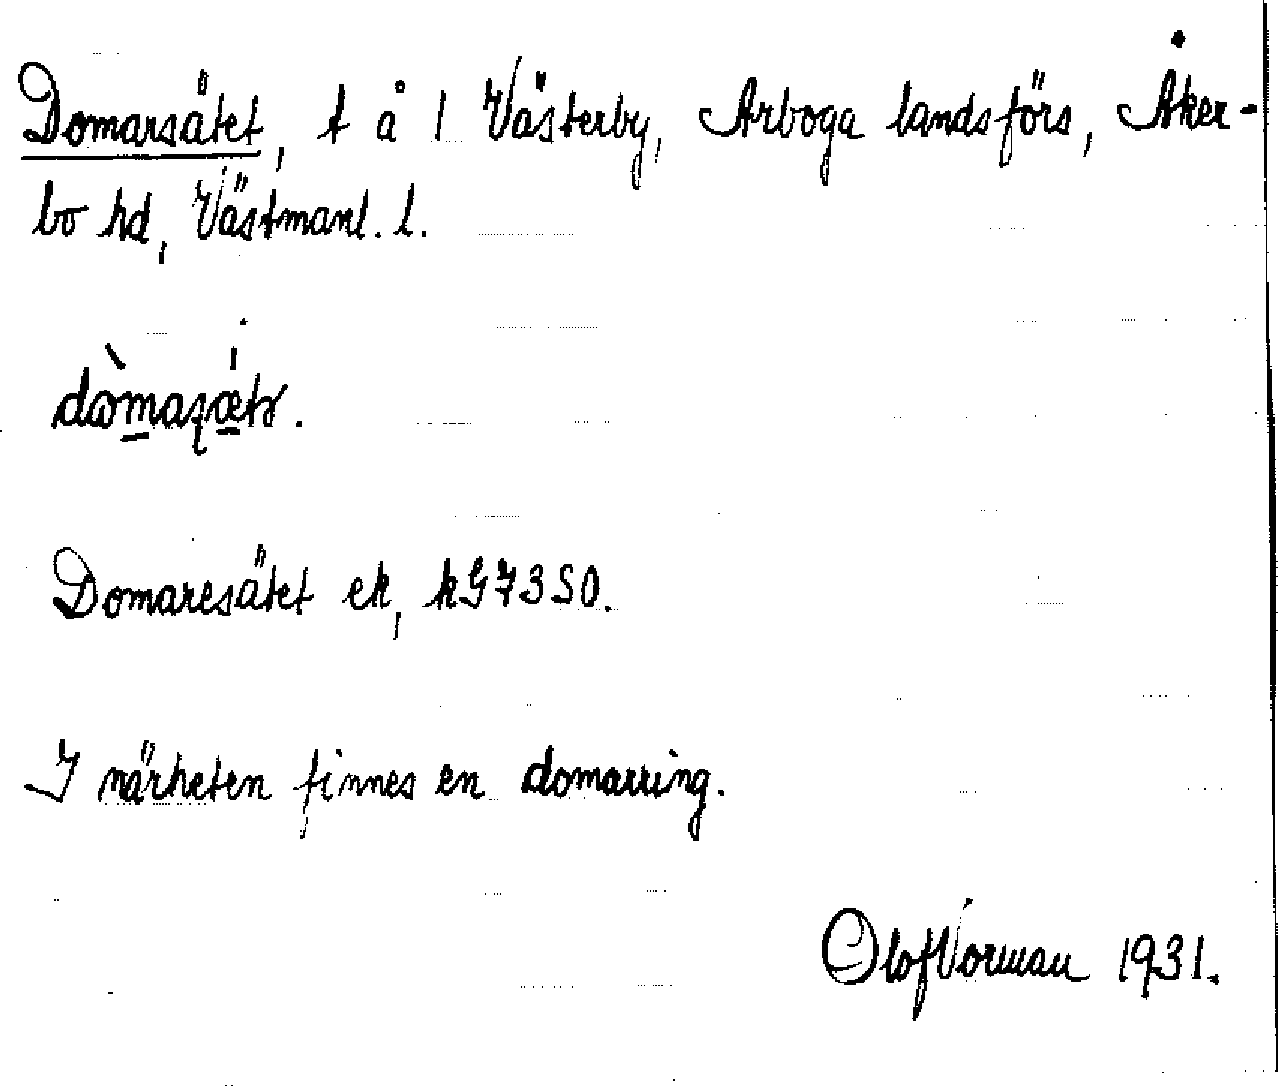 Domarsätet, t å 1 Västerby, Arboga landsförs, Åker-
bo hd, Västmanl. l.
Domaresätet ek, kG73SO.
I närheten finnes en domarring.
Olof Vorman 1931.